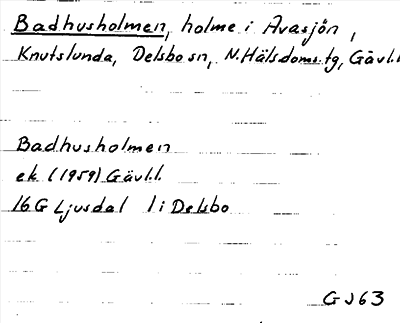 Badhusholmen, holme i Avasjön,
Knutslunda, Delsbo sn, N. Hälsdoms. tg, Gävl.l
Badhusholmen
ek (1959) Gävl.l.
16 G Ljusdal 1 i Delsbo
GJ63